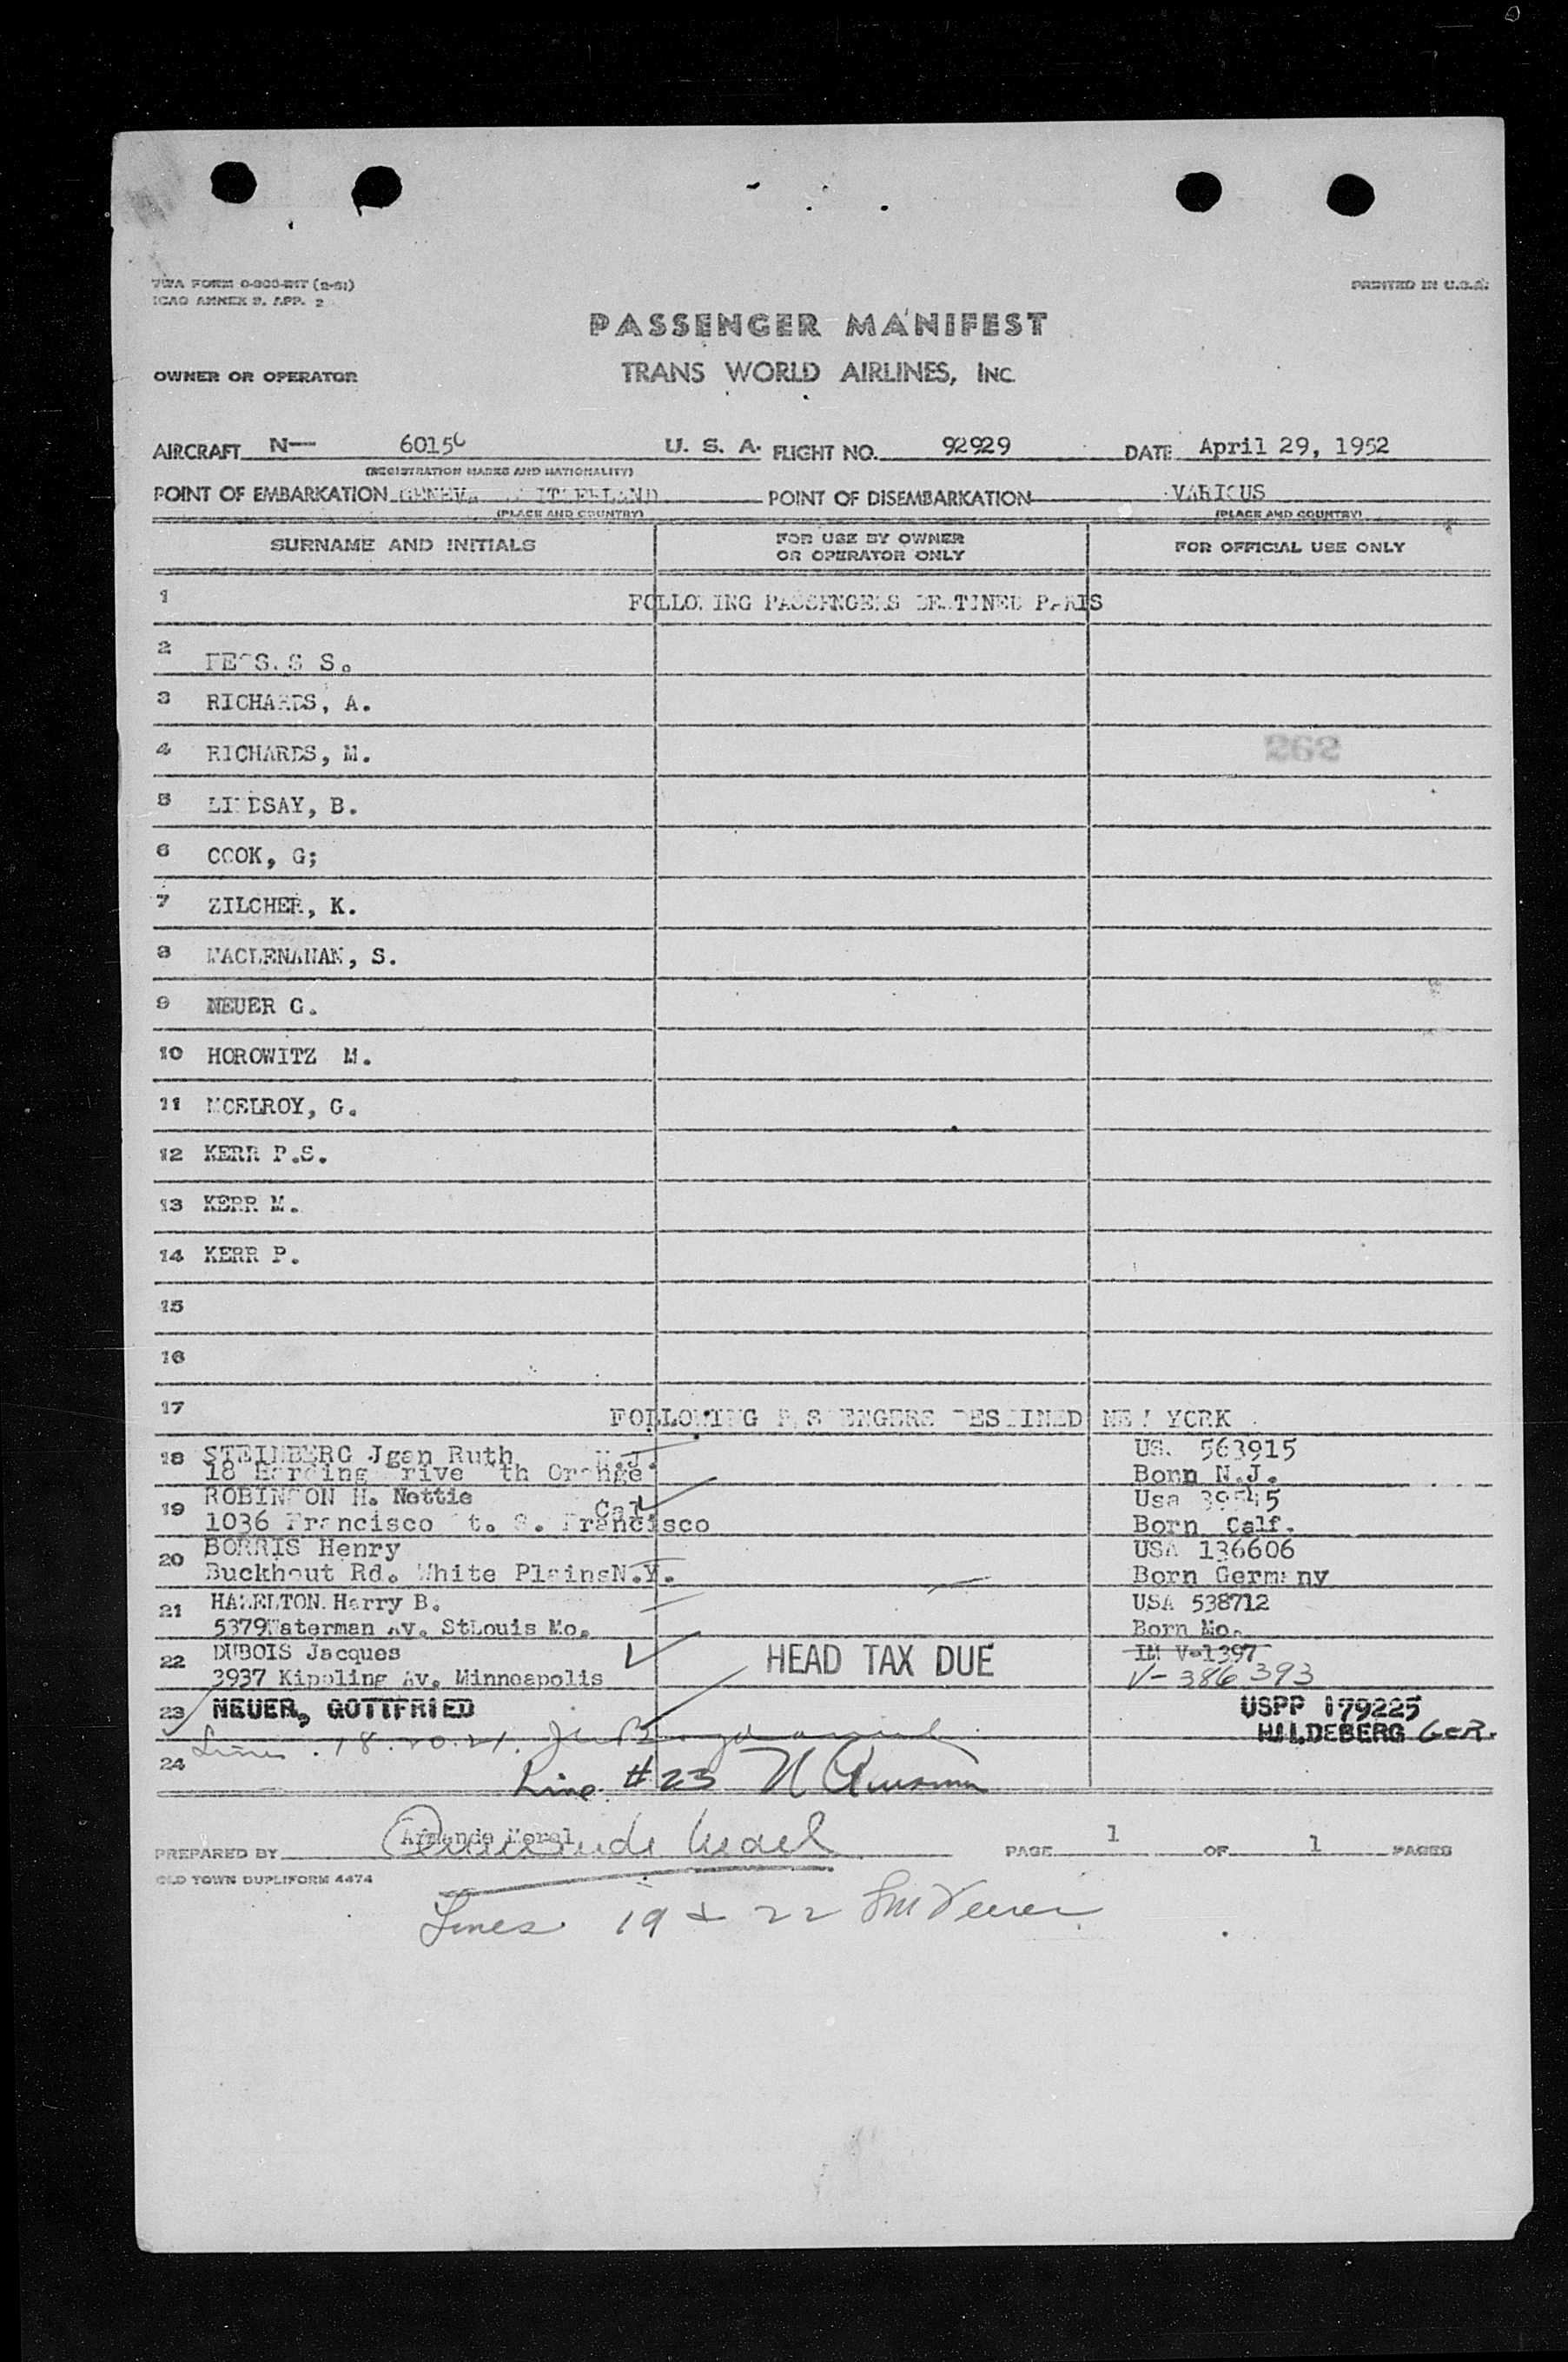 TWA FORM
ICAO ANNEX 9, APP. 2
PRINTED IN U.S.A.
PASSENGER MANIFEST
OWNER OR OPERATOR TRANS WORLD AIRLINES, INC.
AIRCRAFT N— 6015C U. S. A. FLIGHT NO. 92929 DATE April 29, 1952
(REGISTRATION MARKS AND NATIONALITY)
POINT OF EMBARKATION GENEVA SWITZERLAND POINT OF DISEMBARKATION VARIOUS
(PLACE AND COUNTRY) (PLACE AND COUNTRY)
SURNAME AND INITIALS FOR USE BY OWNER OR OPERATOR ONLY FOR OFFICIAL USE ONLY
1 FOLLOWING PASSENGERS DESTINED PARIS
2 S.
3 RICHARDS, A.
4 RICHARDS, M. 262
5 LINDSAY, B.
6 COOK, G;
7 ZILCHER, K.
8 MACLENANAN, S.
9 NEUER G.
10 HOROWITZ M.
11 MCELROY, G.
12 KERR P.S.
13 KERR M.
14 KERR P.
15
16
17 FOLLOWING PASSENGERS DESTINED NEW YORK
18 STEINBERG Jgan Ruth N.J. USA 563915
18 Harding Drive Sth Orange Born N.J.
19 ROBINSON H. Nettie Cal Usa
1036 Francisco St. S. Francisco Born Calf.
20 BORRIS Henry USA 136606
Buckhout Rd. White PlainsN.Y. Born Germany
21 HAZELTON Harry B. USA 538712
5379Waterman Av. StLouis Mo. Born Mo.
22 DUBOIS Jacques HEAD TAX DUE IM V-1397
3937 Kippling Av. Minneapolis V- 386393
23 NEUER, GOTTFRIED USPP 179225
HILDEBERG GER.
Lines 18.20.21.
24
Line #23
PREPARED BY Armande Morel PAGE 1 OF 1 PAGES
OLD TOWN DUPLIFORM 4474
Lines 19 & 22